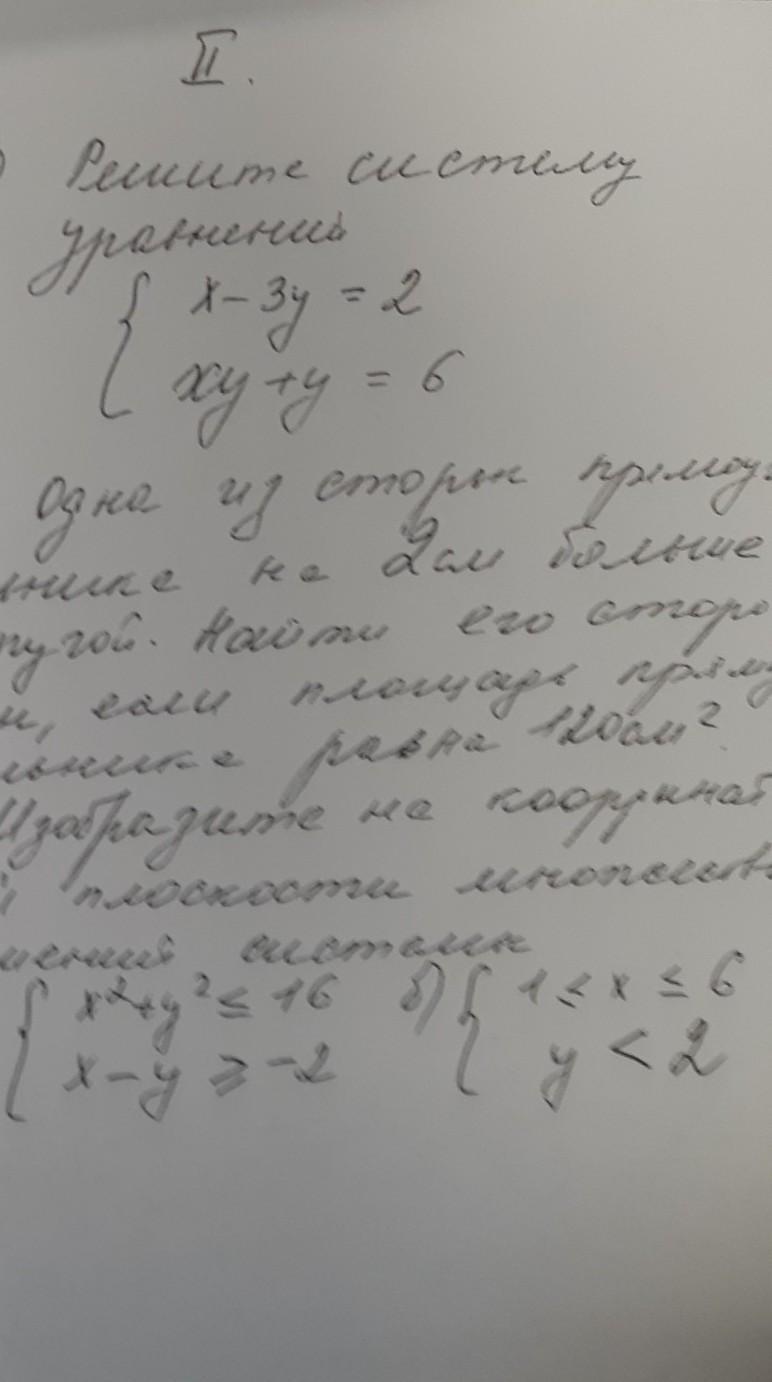 II.
) Решите систему
уравнений
{ x - 3y = 2
xy + y = 6
Одна из сторон прямоу
ьника на 2см больше
другой. Найти его сторо
ы, если площадь прямоу
льника равна 120см²
Изобразите на координат
й плоскости множество
шений системы
{ x² + y² ≤ 16 б) { 1 ≤ x ≤ 6
x - y ⩾ -2 y < 2